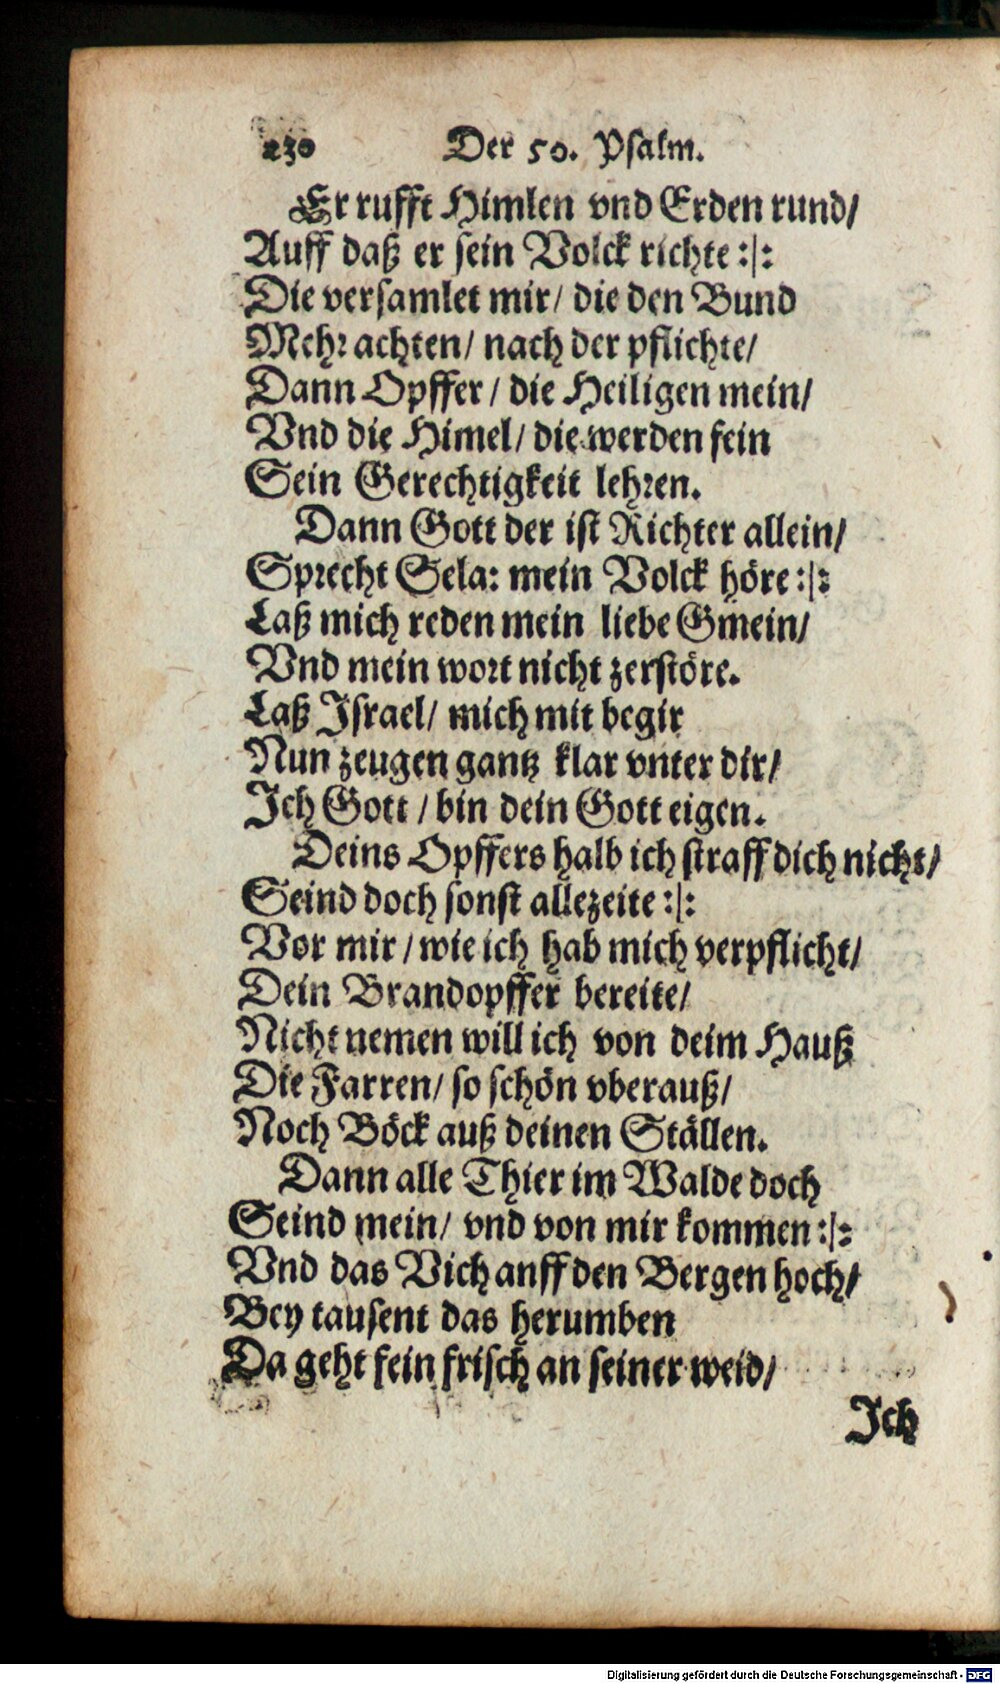 230 Der 50. Psalm.
Er rufft Himlen vnd Erden rund/
Auff daß er sein Volck richte :|:
Die versamlet mir/ die den Bund
Mehr achten/ nach der pflichte/
Dann Opffer / die Heiligen mein/
Vnd die Himel/ die werden fein
Sein Gerechtigkeit lehren.
Dann Gott der ist Richter allein/
Sprecht Sela: mein Volck höre :|:
Laß mich reden mein liebe Gmein/
Vnd mein wort nicht zerstöre.
Laß Israel/ mich mit begir
Nun zeugen gantz klar vnter dir/
Ich Gott / bin dein Gott eigen.
Deins Opffers halb ich straff dich nicht/
Seind doch sonst allezeite :|:
Vor mir / wie ich hab mich verpflicht/
Dein Brandopffer bereite/
Nicht nemen will ich von deim Hauß
Die Farren/ so schön vberauß/
Noch Böck auß deinen Ställen.
Dann alle Thier im Walde doch
Seind mein/ vnd von mir kommen :|:
Vnd das Vich anff den Bergen hoch/
Bey tausent das herumben
Da geht fein frisch an seiner weid/
Ich
Digitalisierung gefördert durch die Deutsche Forschungsgemeinschaft - DFG